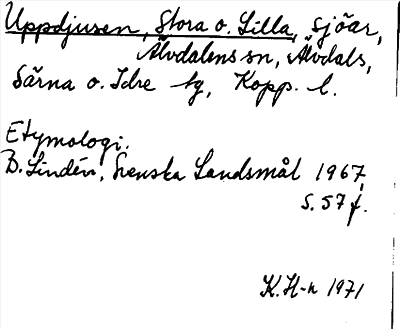 Uppdjusen, Stora o. Lilla, sjöar,
Älvdalens sn, Älvdals,
Särna o. Idre tg, Kopp. l.
Etymologi:
B. Lindén, Svenska Landsmål 1967,
s. 57 f.
K. H-n 1971